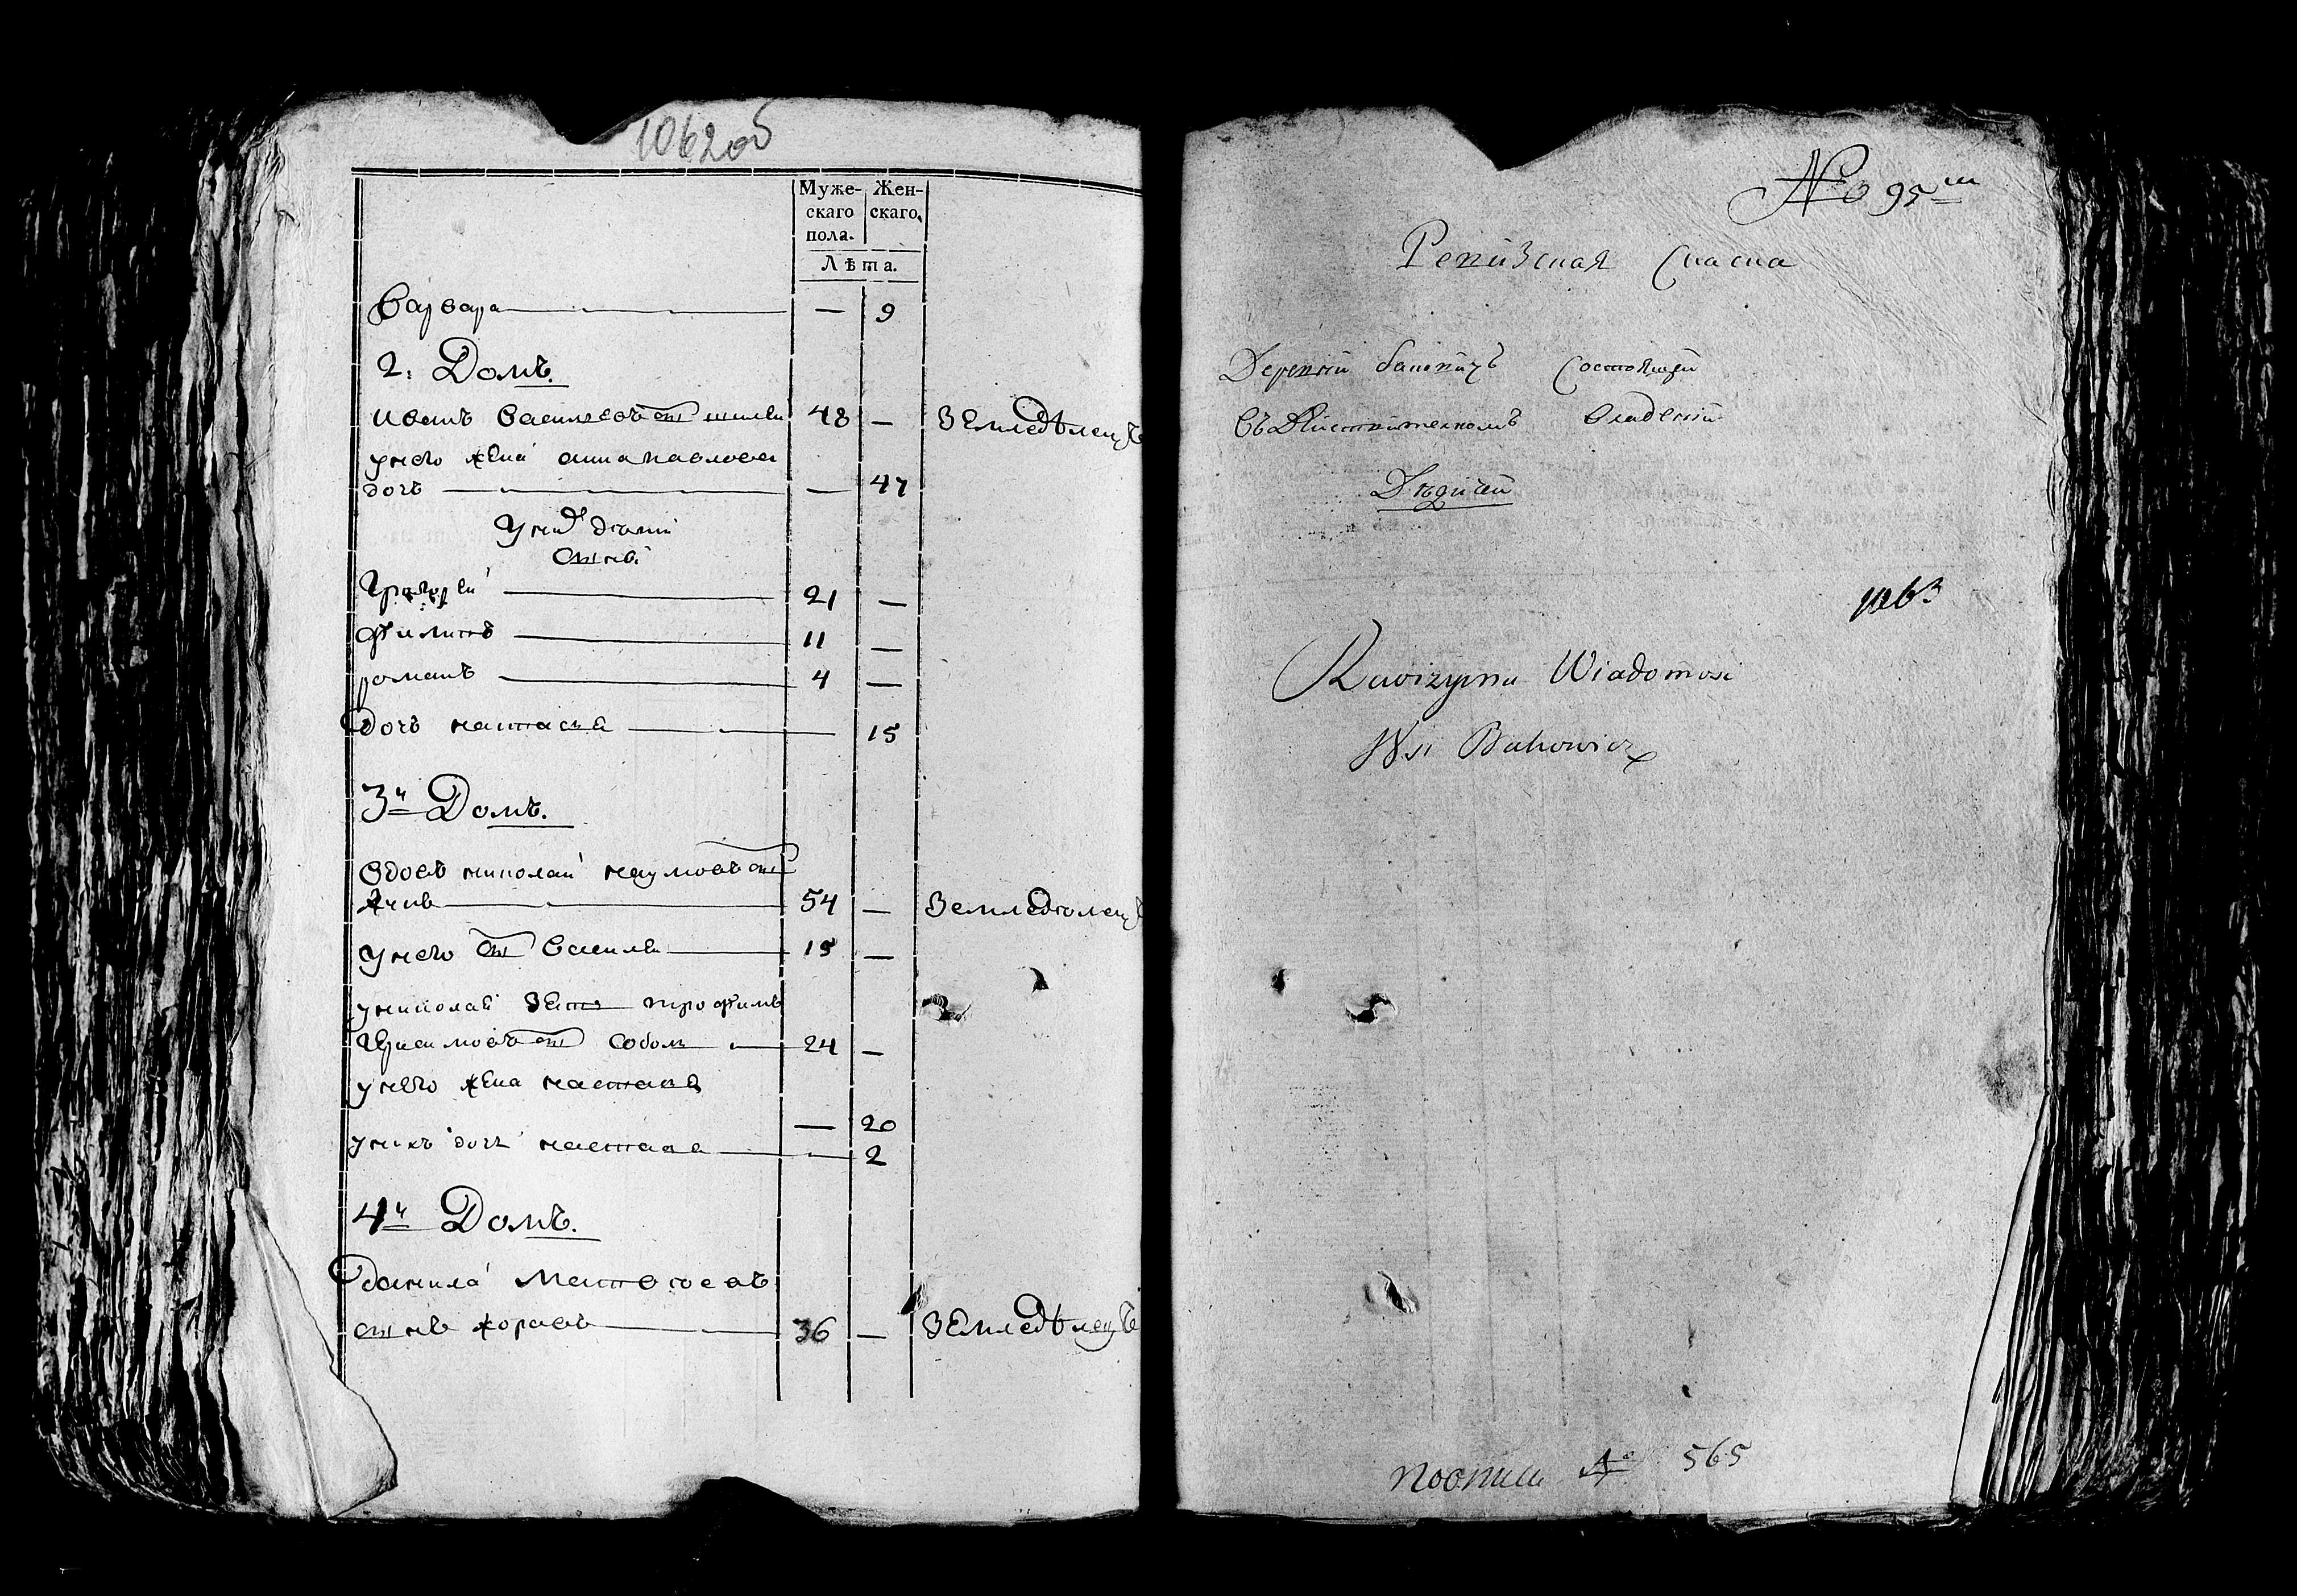 1062об
Муже- Жен-
скаго скаго.
пола.
Лѣта.
Варвара — 9
2: Домъ.
иванъ васильевъ сн 48 — Земледѣлецъ
унего жена анна павлова
дочь — 47
Уних дѣти
сынв
Григорей 21 —
Филипъ 11 —
романъ 4 —
Дочь настася 15
3й Домъ.
вдовъ николай наумовъ сн
54 — Земледѣлецъ
унего сн василь 15 —
униколая зять трофимъ
сн соболь 24 —
унего жена настася
— 20
унихъ дочь настася — 2
4й Домъ.
данила Матвѣевъ
сынъ 36 — Земледѣлецъ
№ 95
Ревизская Сказка
Деревни Баковичъ Состоящей
въ Действительномъ владении
Дѣдичей
1063
Rewizyina Wiadomosc
Wsi Bakowicz
по описи № 565